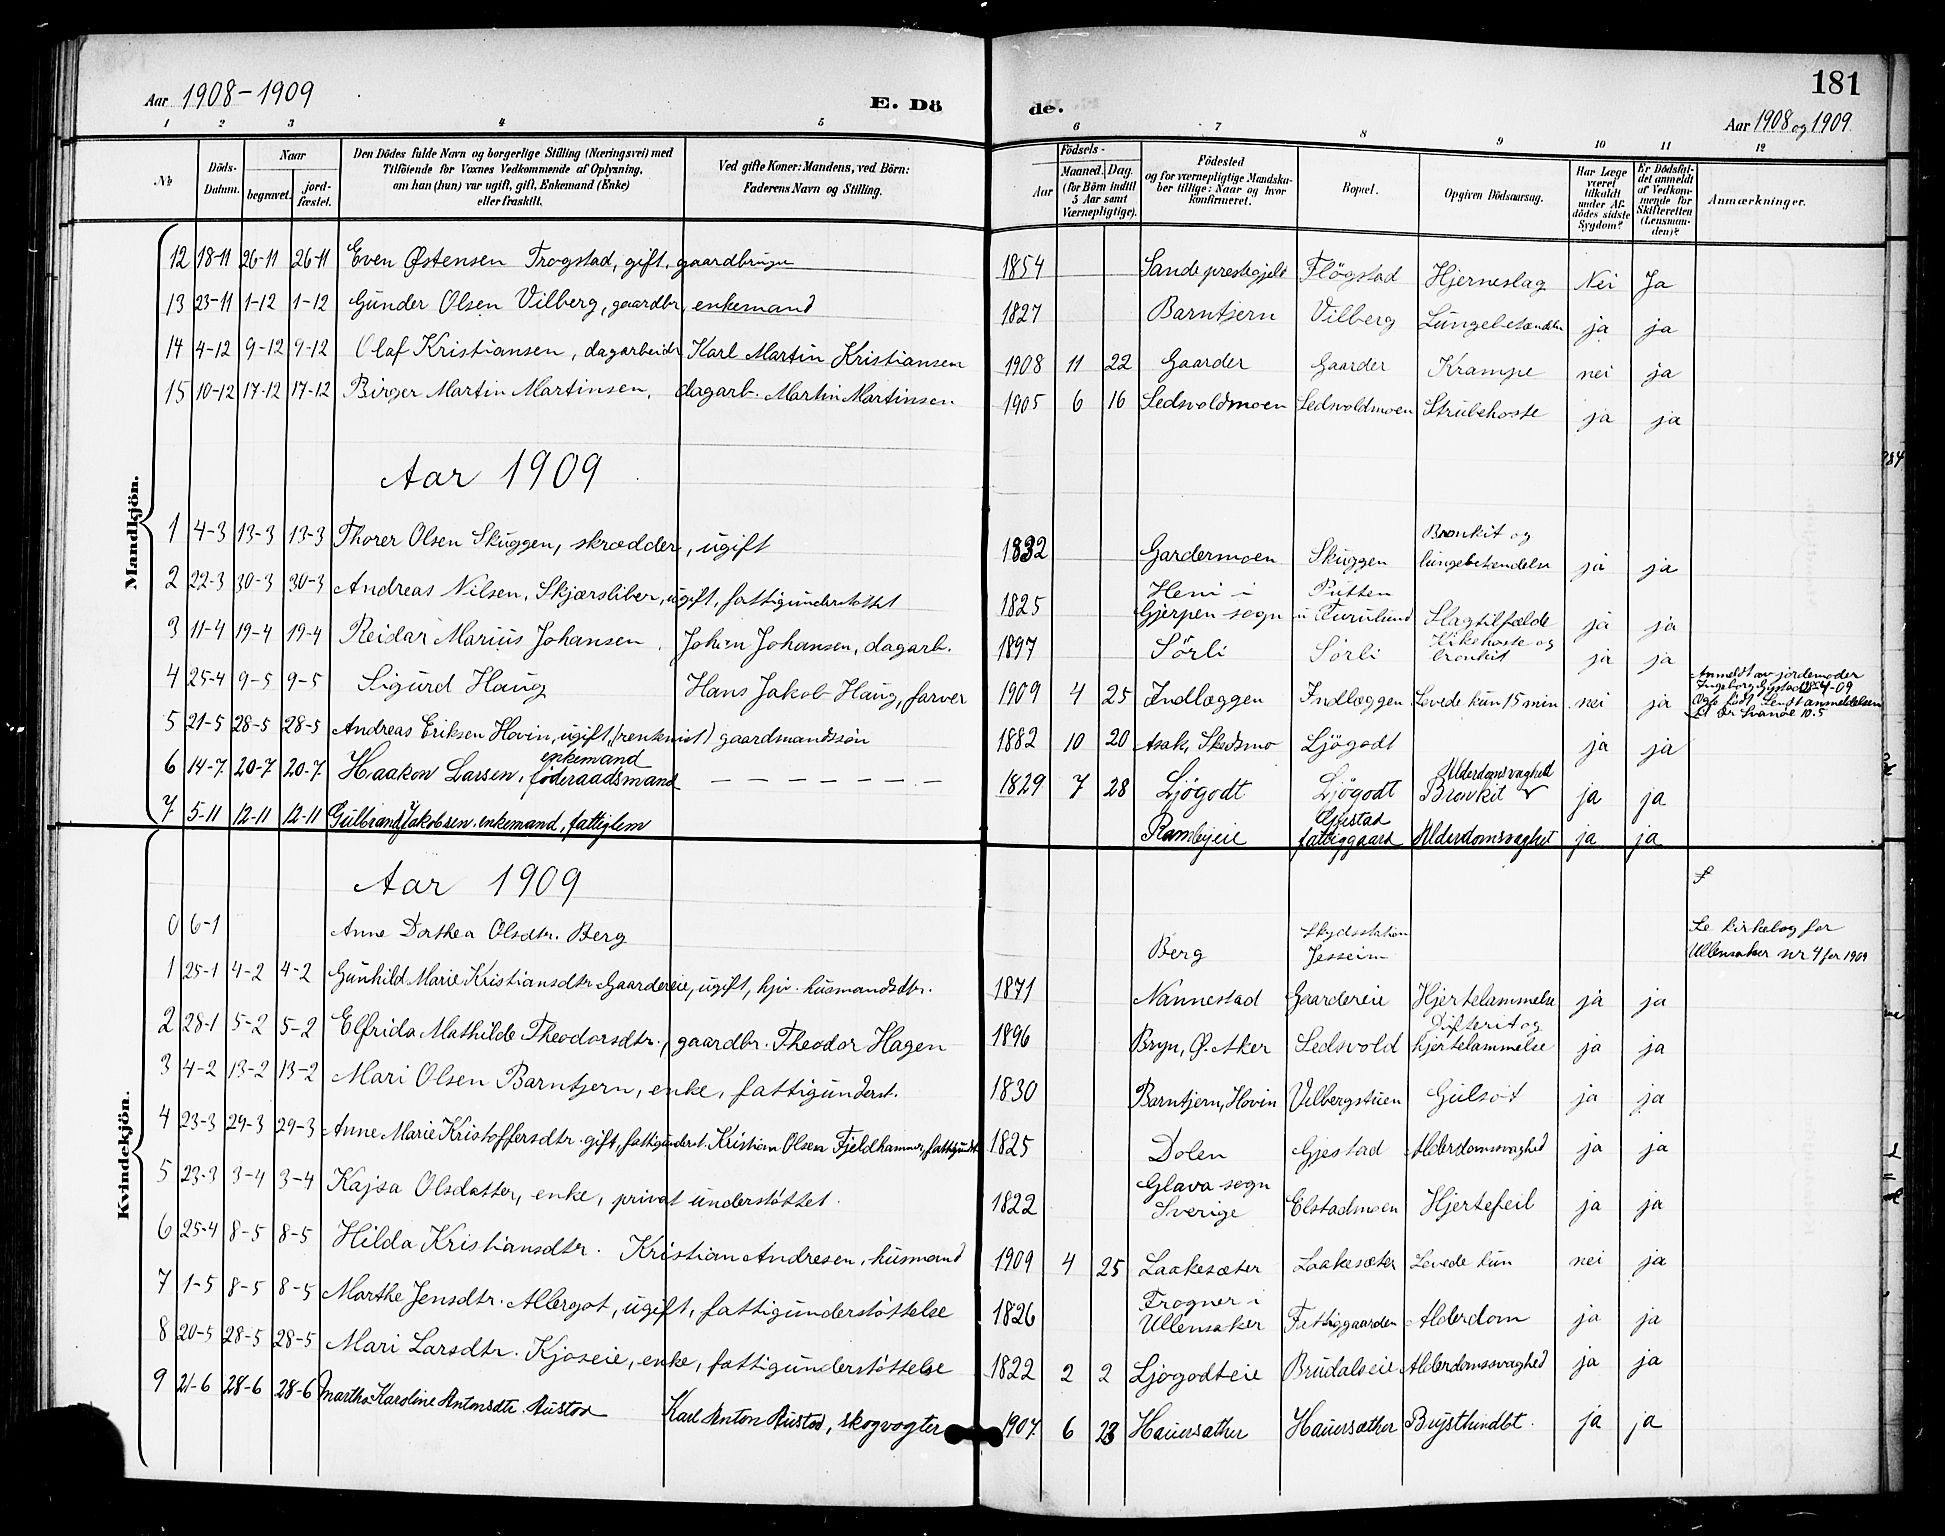 Aar 1908-1909
E. Dö
de.
181
Aar 1908 og 1909.
1 2 3 4 5 6 7 8 9 10 11 12
№
Döds-Datum.
Naar
begravet.
jord-fæstet.
Den Dödes fulde Navn og borgerlige Stilling (Næringsvei) med
Tilföiende for Voxnes Vedkommende af Oplysning,
om han (hun) var ugift, gift, Enkemand (Enke)
eller fraskilt.
Ved gifte Koner: Mandens, ved Börn:
Faderens Navn og Stilling.
Födsels-
Aar
Maaned. Dag.
(for Börn indtil
5 Aar samt
Værnepligtige).
Födested
og for værnepligtige Mandska-
ber tillige: Naar og hvor
konfirmeret.
Bopæl.
Opgiven Dödsaarsag.
Har Læge
været
tilkaldt
under Af-
dödes sidste
Sygdom?
Er Dödsfal-
det anmeldt
af Vedkom-
mende for
Skifteretten
(Lensman-
den)?
Anmærkninger.
Mandkjön.
12 18-11 26-11 26-11 Even Østensen Trogstad, gift, gaardbruger 1854 Sande prestegjeld Fløgstad Hjerneslag Nei Ja
13 23-11 1-12 1-12 Gunder Olsen Vilberg, gaardbr, enkemand 1827 Barntjern Vilberg Lungebetændelse ja ja
14 4-12 9-12 9-12 Olaf Kristiansen, dagarbeidr Karl Martin Kristiansen 1908 11 22 Gaarder Gaarder Krampe nei ja
15 10-12 17-12 17-12 Birger Martin Martinsen, dagarb. Martin Martinsen 1905 6 16 Ledsvoldmoen Ledsvoldmoen Strubehoste ja ja
Aar 1909
1 4-3 13-3 13-3 Thorer Olsen Skuggen, skrædder, ugift 1832 Gardermoen Skuggen Bronkit og lungebetendelse ja ja
2 22-3 30-3 30-3 Andreas Nilsen, Skjærsliber, ugift, fattigunderstøttet 1825 Heni i Gjerpen sogn Putten u. Furulund Slagtilfælde ja ja
3 11-4 19-4 19-4 Reidar Marius Johansen, Johan Johansen, dagarb. 1897 Sørli Sørli Kikehoste og bronkit ja ja
4 25-4 9-5 9-5 Sigurd Haug Hans Jakob Haug, farver 1909 4 25 Indlæggen Indlæggen Levede kun 15 min nei ja Anmeldt av jordemoder
5 21-5 28-5 28-5 Andreas Eriksen Hovin, ugift, gaardmandssøn 1882 10 20 Asak, Skedsmo Ljögodt ja ja
6 14-7 20-7 20-7 Haakon Larsen, enkemand føderaadsmand — — — — — — — 1829 7 28 Ljögodt Ljögodt Alderdomsvaghed Bronkit ja ja
7 5-11 12-11 12-11 Gulbrand Jakobsen. enkemand, fattiglem Rambyeie Gjestad fattiggaard Alderdomsvaghet ja ja
Kvindekjön.
Aar 1909
0 6-1 Anne Dorthea Olsdtr. Berg Berg Skydsstation Jessheim Se kirkebog for
Ullensaker nr 4 for 1909
1 25-1 4-2 4-2 Gunhild Marie Kristiansdtr Gaardereie, ugift, hjv. husmandsdtr. 1871 Nannestad Gaardereie Hjertelammelse ja ja
2 28-1 5-2 5-2 Elfrida Mathilde Theodorsdtr., gaardbr. Theodor Hagen 1896 Bryn, Ø. Aker Ledsvold Difterit og hjertelammelse ja ja
3 4-2 13-2 13-2 Mari Olsen Barntjern, enke, fattigunderst. 1830 Barntjern, Hovin Vilbergstuen Gulsot ja ja
4 23-3 29-3 29-3 Anne Marie Kristoffersdtr. gift, fattigunderst. Kristian Olsen Fjeldhammer, fattigundst 1825 Dolen Gjestad Alderdomsvaghed ja ja
5 23-3 3-4 3-4 Kajsa Olsdatter, enke, privat understøttet. 1822 Glava sogn Sverige Elstadmoen Hjertefeil ja ja
6 25-4 8-5 8-5 Hilda Kristiansdtr. Kristian Andresen, husmand 1909 4 25 Laakesæter Laakesæter Levede kun nei ja
7 1-5 8-5 8-5 Marthe Jensdtr. Allergot, ugift, fattigunderstøttelse 1826 Frogner i Ullensaker Fattiggaarden Alderdom ja ja
8 20-5 28-5 28-5 Mari Larsdtr. Kjoseie, enke, fattigunderstøttelse 1822 2 2 Ljøgodteie Brudalseie Alderdomssvaghed ja ja
9 21-6 28-6 28-6 Martha Karoline Antonsdtr. Austad Karl Anton Austad, skogvogter 1907 6 23 Hauersæther Hauersæther ja ja